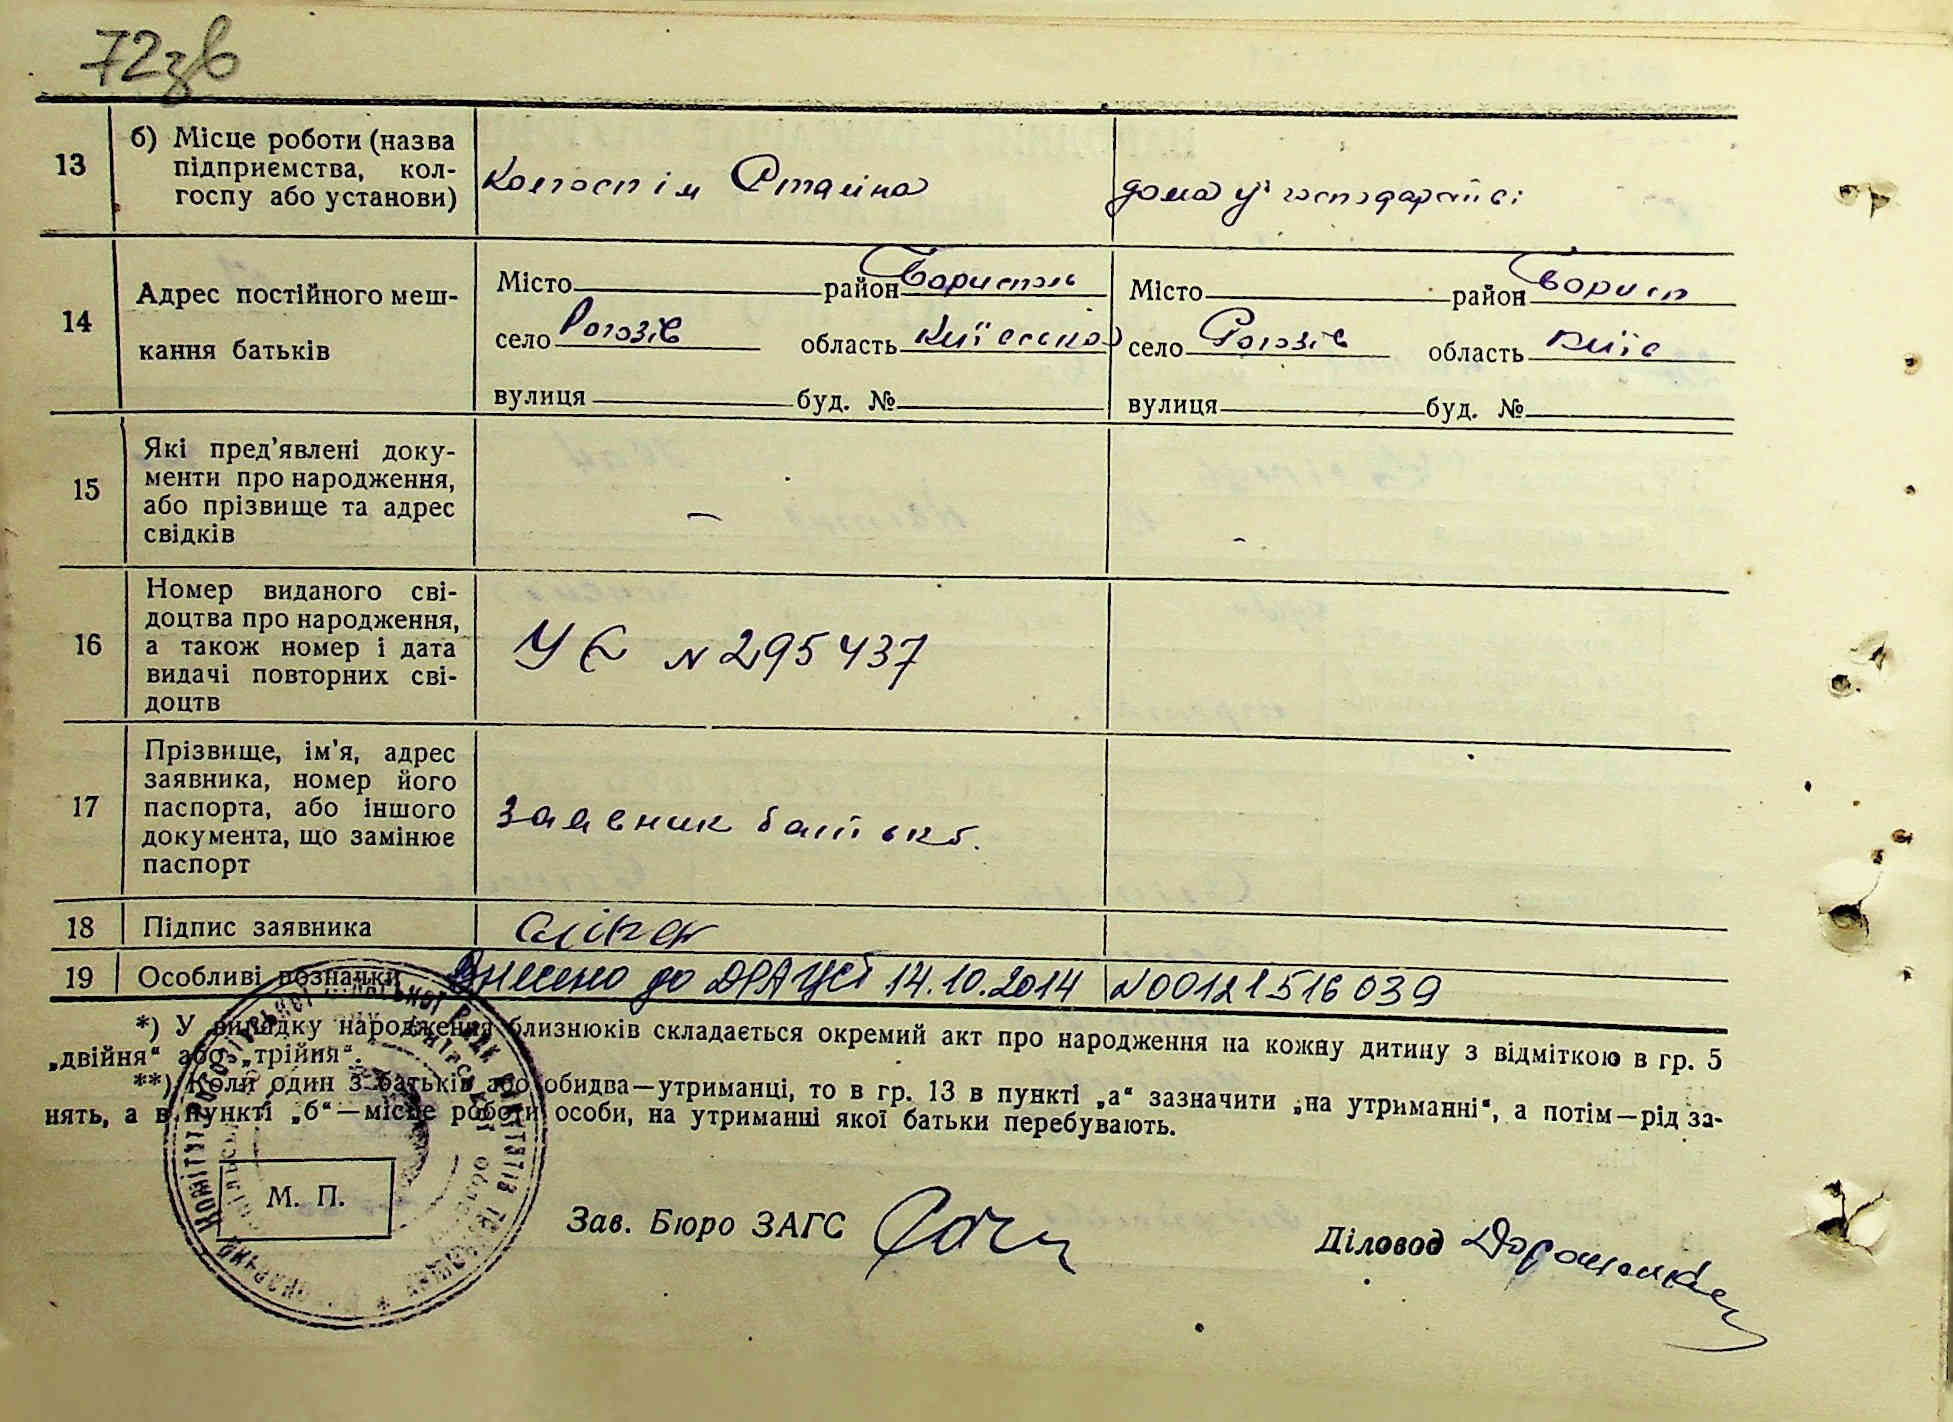 72зв
13
б) Місце роботи (назва
підприємства, кол-
госпу або установи)
Колгосп ім Сталіна
дома у господарстві
14
Адрес постійного меш-
кання батьків
Місто район Бориспіль
село Рогозів область Київська
вулиця буд. №
Місто район Борисп
село Рогозів область Київ
вулиця буд. №
15
Які пред'явлені доку-
менти про народження,
або прізвище та адрес
свідків
–
–
16
Номер виданого сві-
доцтва про народження,
а також номер і дата
видачі повторних сві-
доцтв
УЄ N 295437
17
Прізвище, ім'я, адрес
заявника, номер його
паспорта, або іншого
документа, що замінює
паспорт
Заявник батько.
18
Підпис заявника
19
Особливі розначки
Внесено до ДРАЦСГ 14.10.2014 N00121516039
*) У випадку народження близнюків складається окремий акт про народження на кожну дитину з відміткою в гр. 5
„двійня“ або „трійня“.
**) Коли один з батьків або обидва—утриманці, то в гр. 13 в пункті „а“ зазначити „на утриманні“, а потім—рід за-
нять, а в пункті „б“—місце роботи особи, на утриманні якої батьки перебувають.
М. П.
Зав. Бюро ЗАГС
Діловод